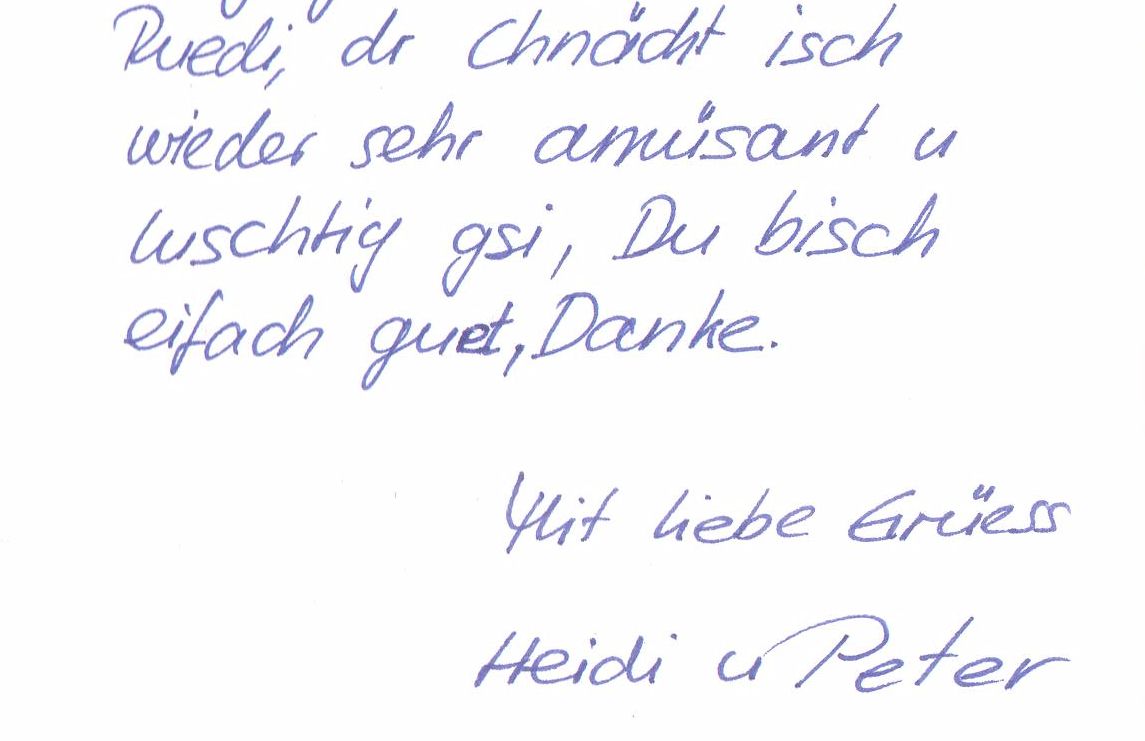 Ruedi, dr Chnächt isch
wieder sehr amüsant u
luschtig gsi, Du bisch
eifach guet, Danke.
Mit liebe Grüess
Heidi u Peter